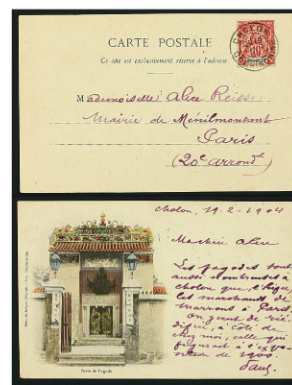 CARTE POSTALE
Ce côté est exclusivement réservé à l'adresse
CHOLON
10
Mademoiselle Alice Reiss
Mairie de Ménilmontant
Paris
(20e arrondt)
cholon, 19-2-1904
Ma chère Alice
Les pagodes sont
aussi nombreuses à
cholon que,
les marchands de
marrons à Paris.
On vient de réé-
difier, à côté de
chez moi, celle qui
figurait à l'expo-
sition de 1900.
Paul.
Porte de Pagode